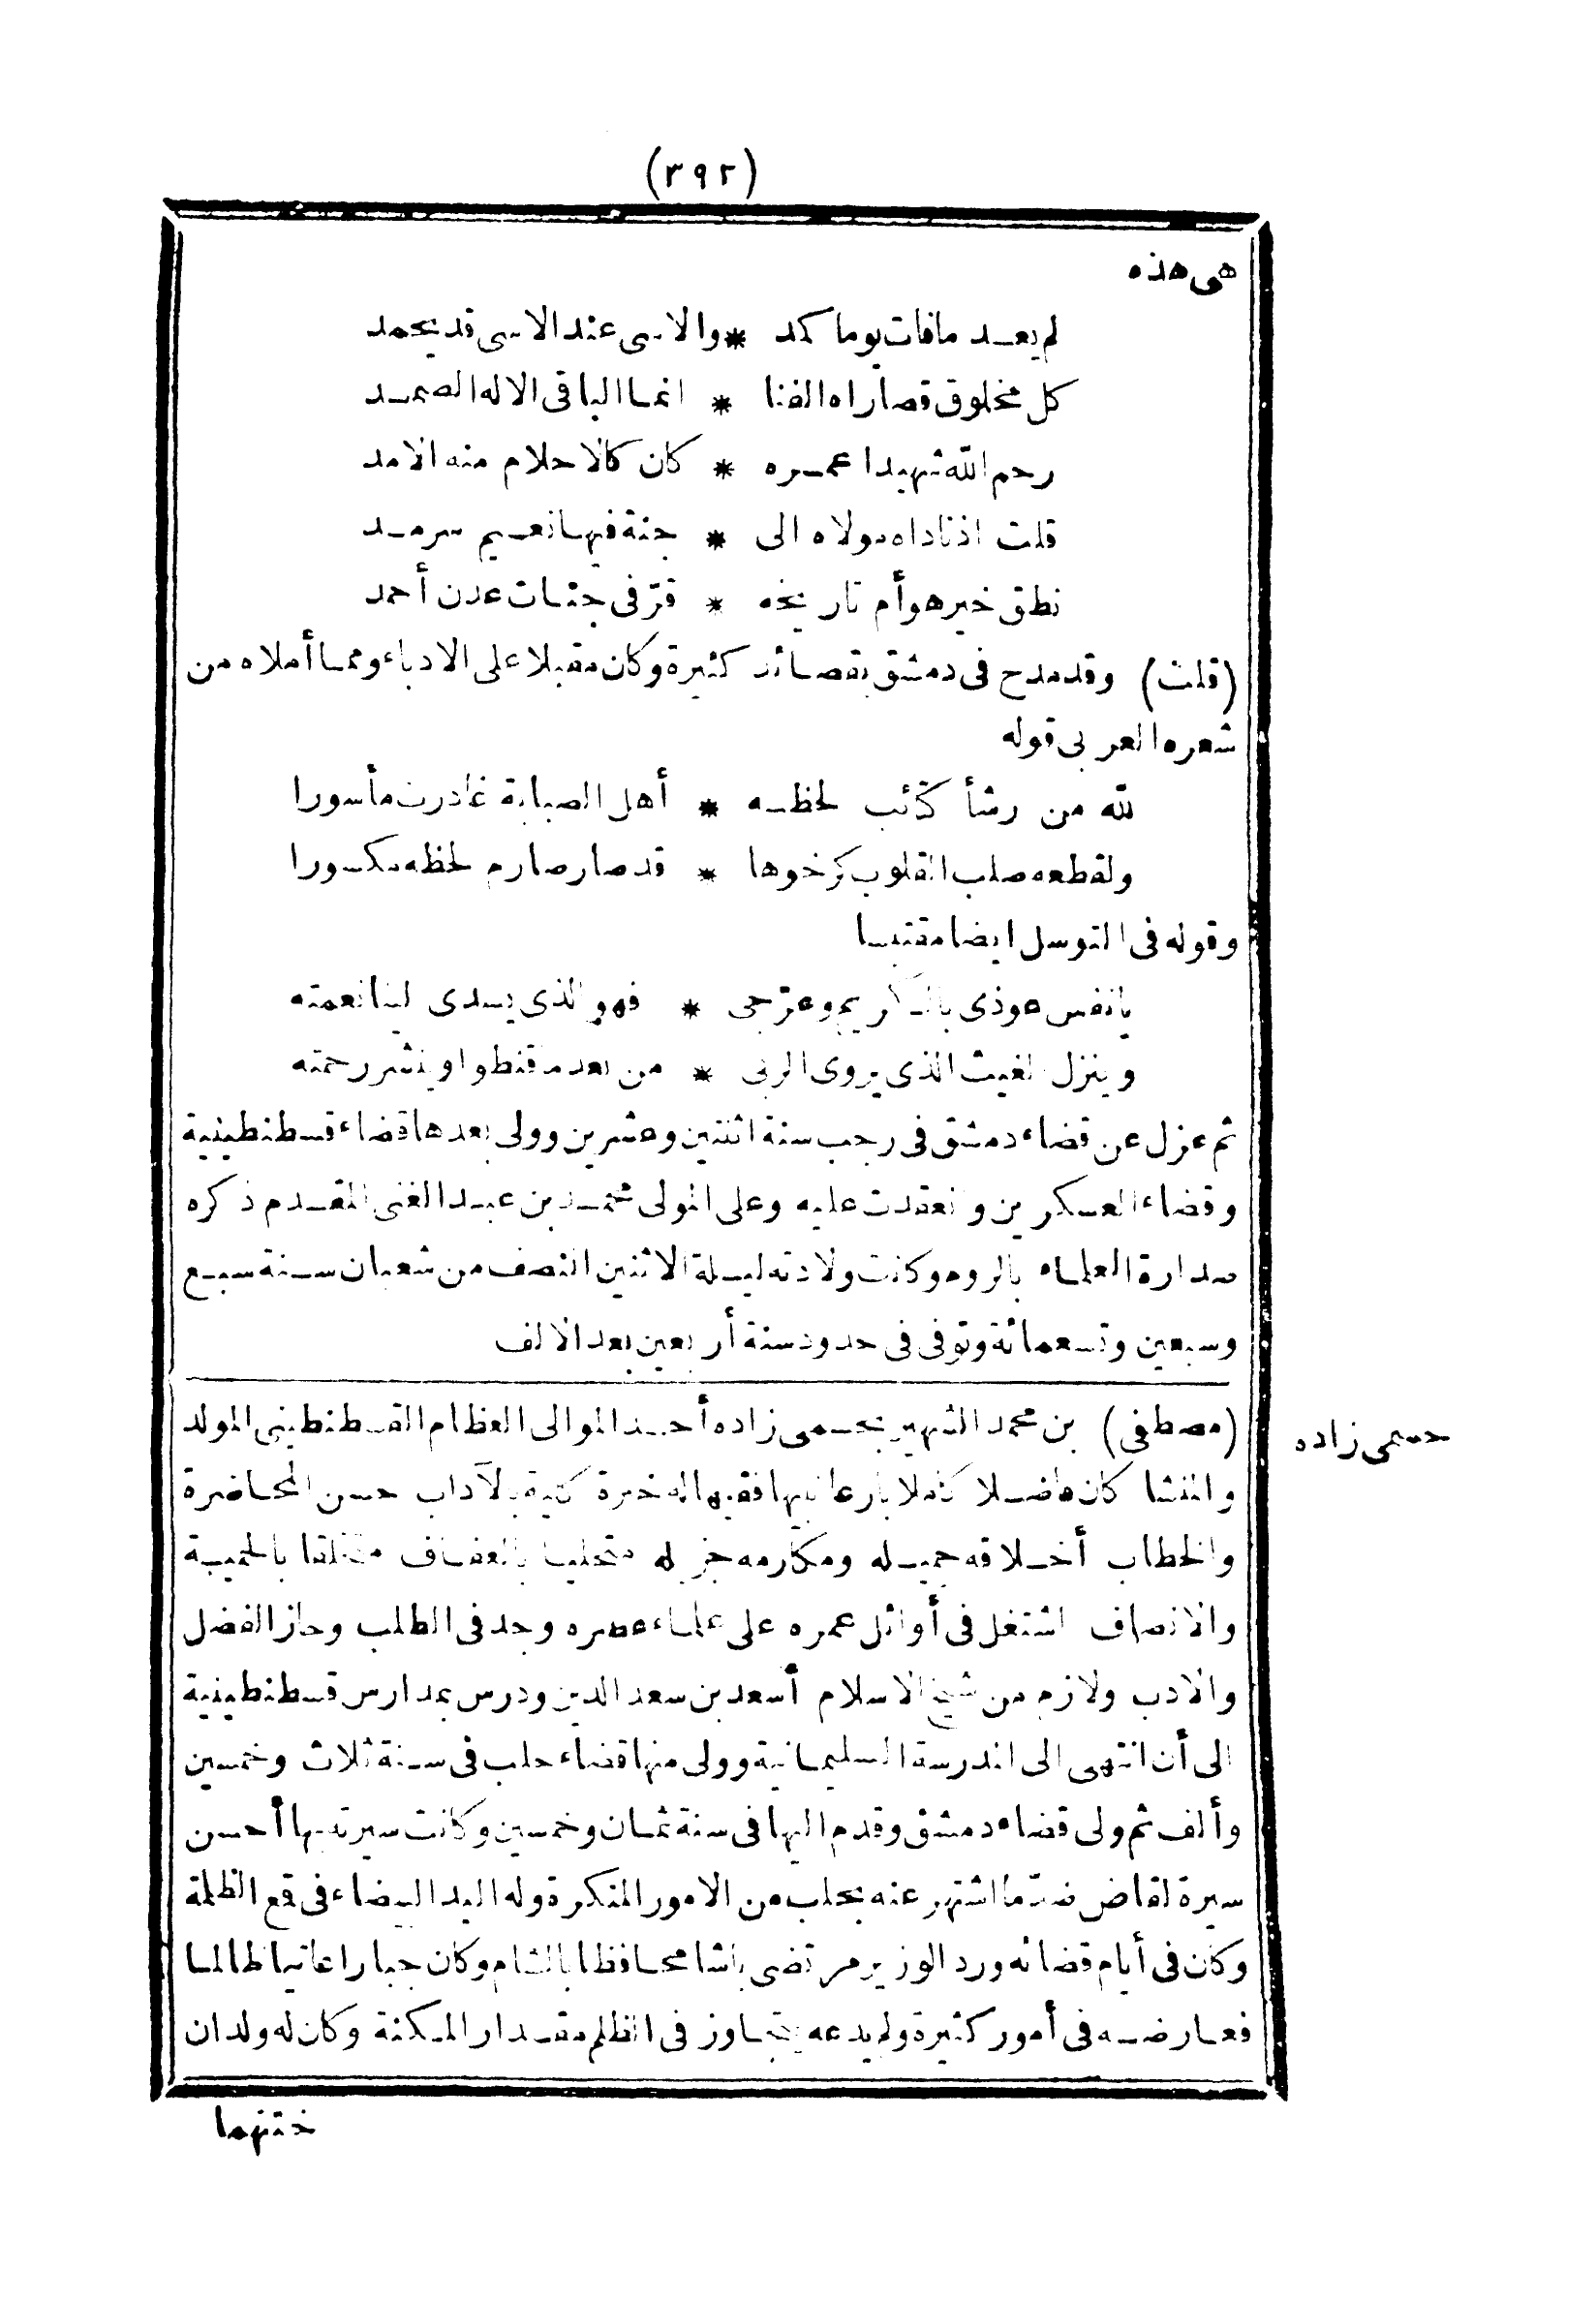 (٣٩٢)
هى هذه
لم يعد مافات يوما كمد * والاسى عند الاسى قد يحمد
كل مخلوق قصاراه الفنا * انما الباقى الاله الصمد
رحم الله شهيدا عمره * كان كالاحلام منه الامد
قلت اذ ناداه مولاه الى * جنة فيها نعيم سرمد
نطق خير هو أم تاريخه * قرّ فى جنات عدن أحمد
(قلت) وقد مدح فى دمشق بقصائد كثيرة وكان مقبلا على الادباء ومما أملاه من
شعره العربى قوله
لله من رشأ كتائب لحظه * أهل الصبابة غادرت مأسورا
ولقطعه صلب القلوب كرخوها * قد صار صارم لحظه مكسورا
وقوله فى التوسل ايضا مقتبسا
يا نفس عوذى بالكريم وعرّجى * فهو الذى يسدى لينا نعمته
وينزل الغيث الذى يروى الربى * من بعد ما قنطوا وينشر رحمته
ثم عزل عن قضاء دمشق فى رجب سنة اثنتين وعشرين وولى بعدها قضاء قسطنطينية
وقضاء العسكرين وانعقدت عليه وعلى المولى محمد بن عبد الغنى المقدم ذكره
صدارة العلماء بالروم وكانت ولادته ليلة الاثنين النصف من شعبان سنة سبع
وسبعين وتسعمائة وتوفى فى حدود سنة أربعين بعد الالف
حسمى زاده
(مصطفى) بن محمد الشهير بحسمى زاده أحد الموالى العظام القسطنطينى المولد
والمنشا كان فاضلا كاملا بارعا نبيها فقيها له خبرة كلية بالآداب حسن المحاضرة
والخطاب أخلاقه جميله ومكارمه جزيله متحليا بالعفاف متخلقا بالحمية
والانصاف اشتغل فى أوائل عمره على علماء عصره وجد فى الطلب وحاز الفضل
والادب ولازم من شيخ الاسلام أسعد بن سعد الدين ودرس بمدارس قسطنطينية
الى أن انتهى الى المدرسة السليمانية وولى منها قضاء حلب فى سنة ثلاث وخمسين
وألف ثم ولى قضاء دمشق وقدم اليها فى سنة ثمان وخمسين وكانت سيرته بها أحسن
سيرة لقاض ضدّ ما اشتهر عنه بحلب من الامور المنكرة وله اليد البيضاء فى قمع الظلمة
وكان فى أيام قضائه ورد الوزير مرتضى باشا محافظا بالشام وكان جبارا عاتيا ظالما
فعارضه فى أمور كثيرة ولم يدعه يتجاوز فى الظلم مقدار المكنة وكان له ولدان
ختنهما